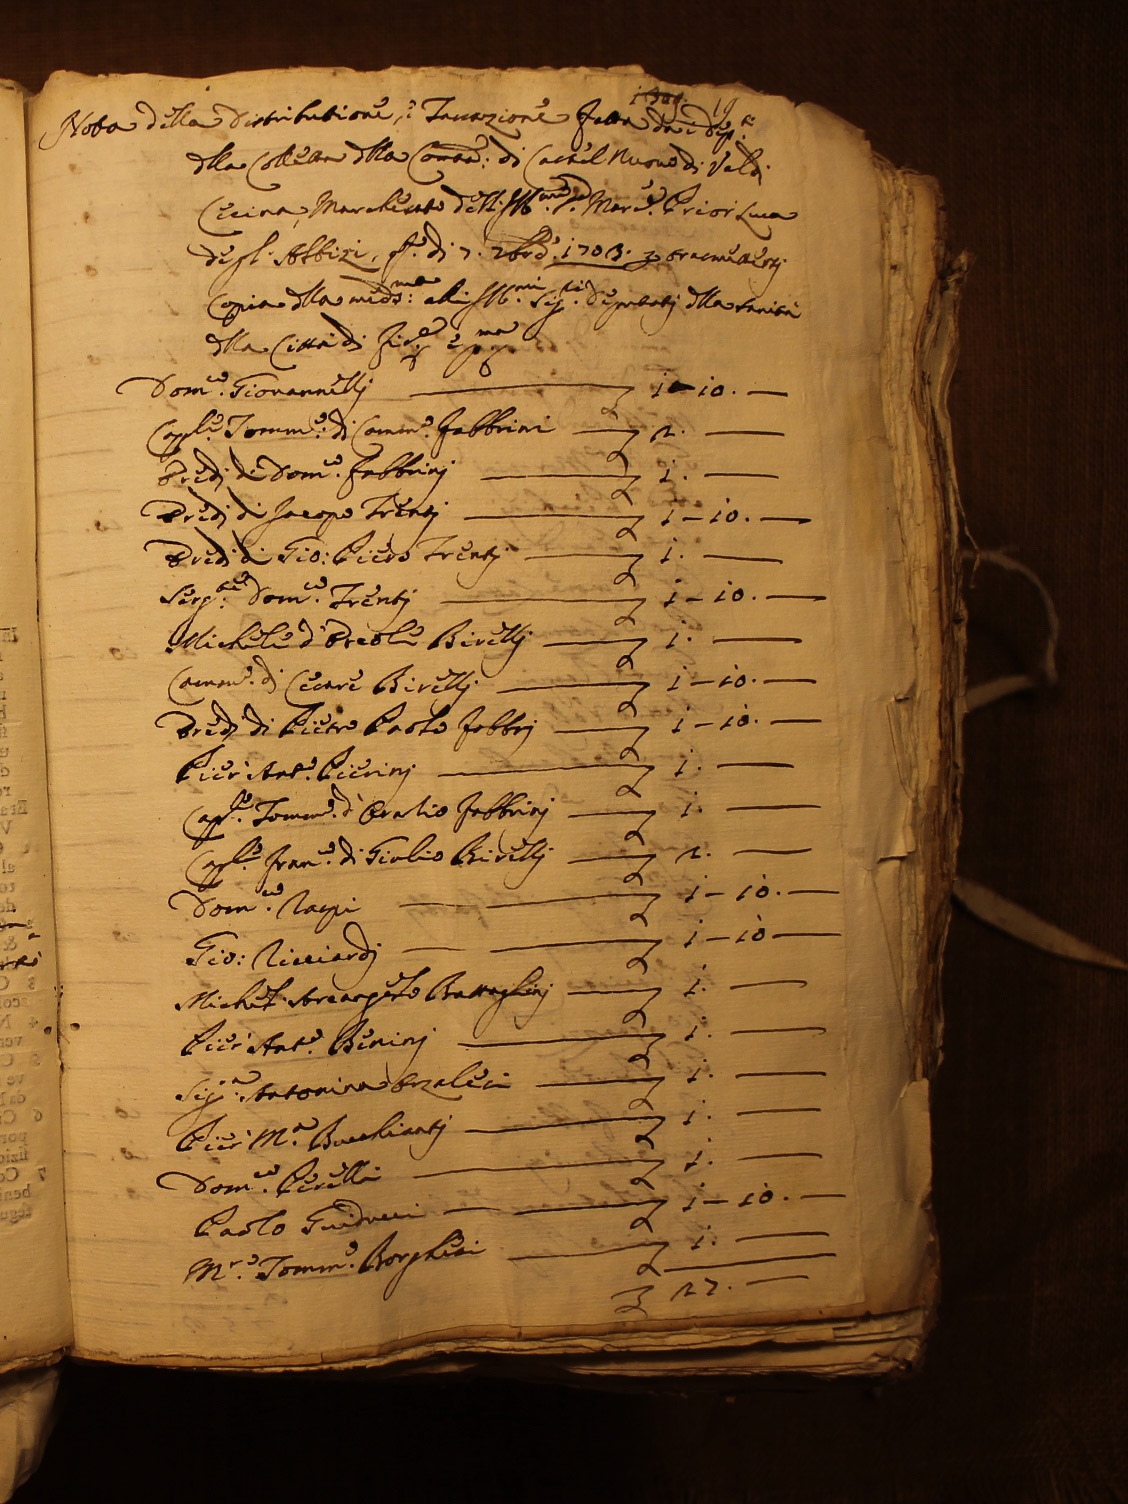 19
Nota della Distributione, e Tassazione fatta da i Dep.ti
dlla Colletta dlla Com.tà: di Castel Nuovo di Val di
Cecina, Marchesato dell' Ill.mo Sig.re March.e Prior Luca
degl'Albizi, q.o dì 7. 7bre. 1703. p trasmetterj
Copia dlla med.ma: alli Ill.mi Sig.ri Deputatj dlla Sanità
dlla Città dj Fir.ze e p.ma
Dom.co Giovannellj £ 1-10.—
Capp.le Tomm.o: di Camm.o Fabbrini £ 2.—
Eredj di Dom.co Fabbrinj £ 1.—
Eredj di Jacopo Trentj £ 1-10.—
Eredj di Gio: Piero Trentj £ 1.—
Serg.te Dom.co Trentj £ 1-10.—
Michele d'Ercole Birellj £ 1.—
Camm.o di Cesare Birellj £ 1-10.—
Eredj di Pietro Paolo Fabbrj £ 1-10.—
Pier' Ant.o Pierinj £ 1.—
Cap.le Tomm.o d'Oratio Fabbrinj £ 1.—
Cap.le Fran.co di Giulio Birellj £ 2.—
Dom.co Raspi £ 1-10.—
Gio: Ricciardj £ 1-10—
Michel' Arcangelo Battaglinj £ 1.—
Pier' Ant.o Bininj £ 1.—
Sig.ra Antonina Orzalesi £ 1.—
Pier' M.a Bucchiantj £ 1.—
Dom.co Perelli £ 1.—
Paolo Guiducci £ 1-10.—
M.ro Tomm.o Borghesi £ 1.—
£ 27.—